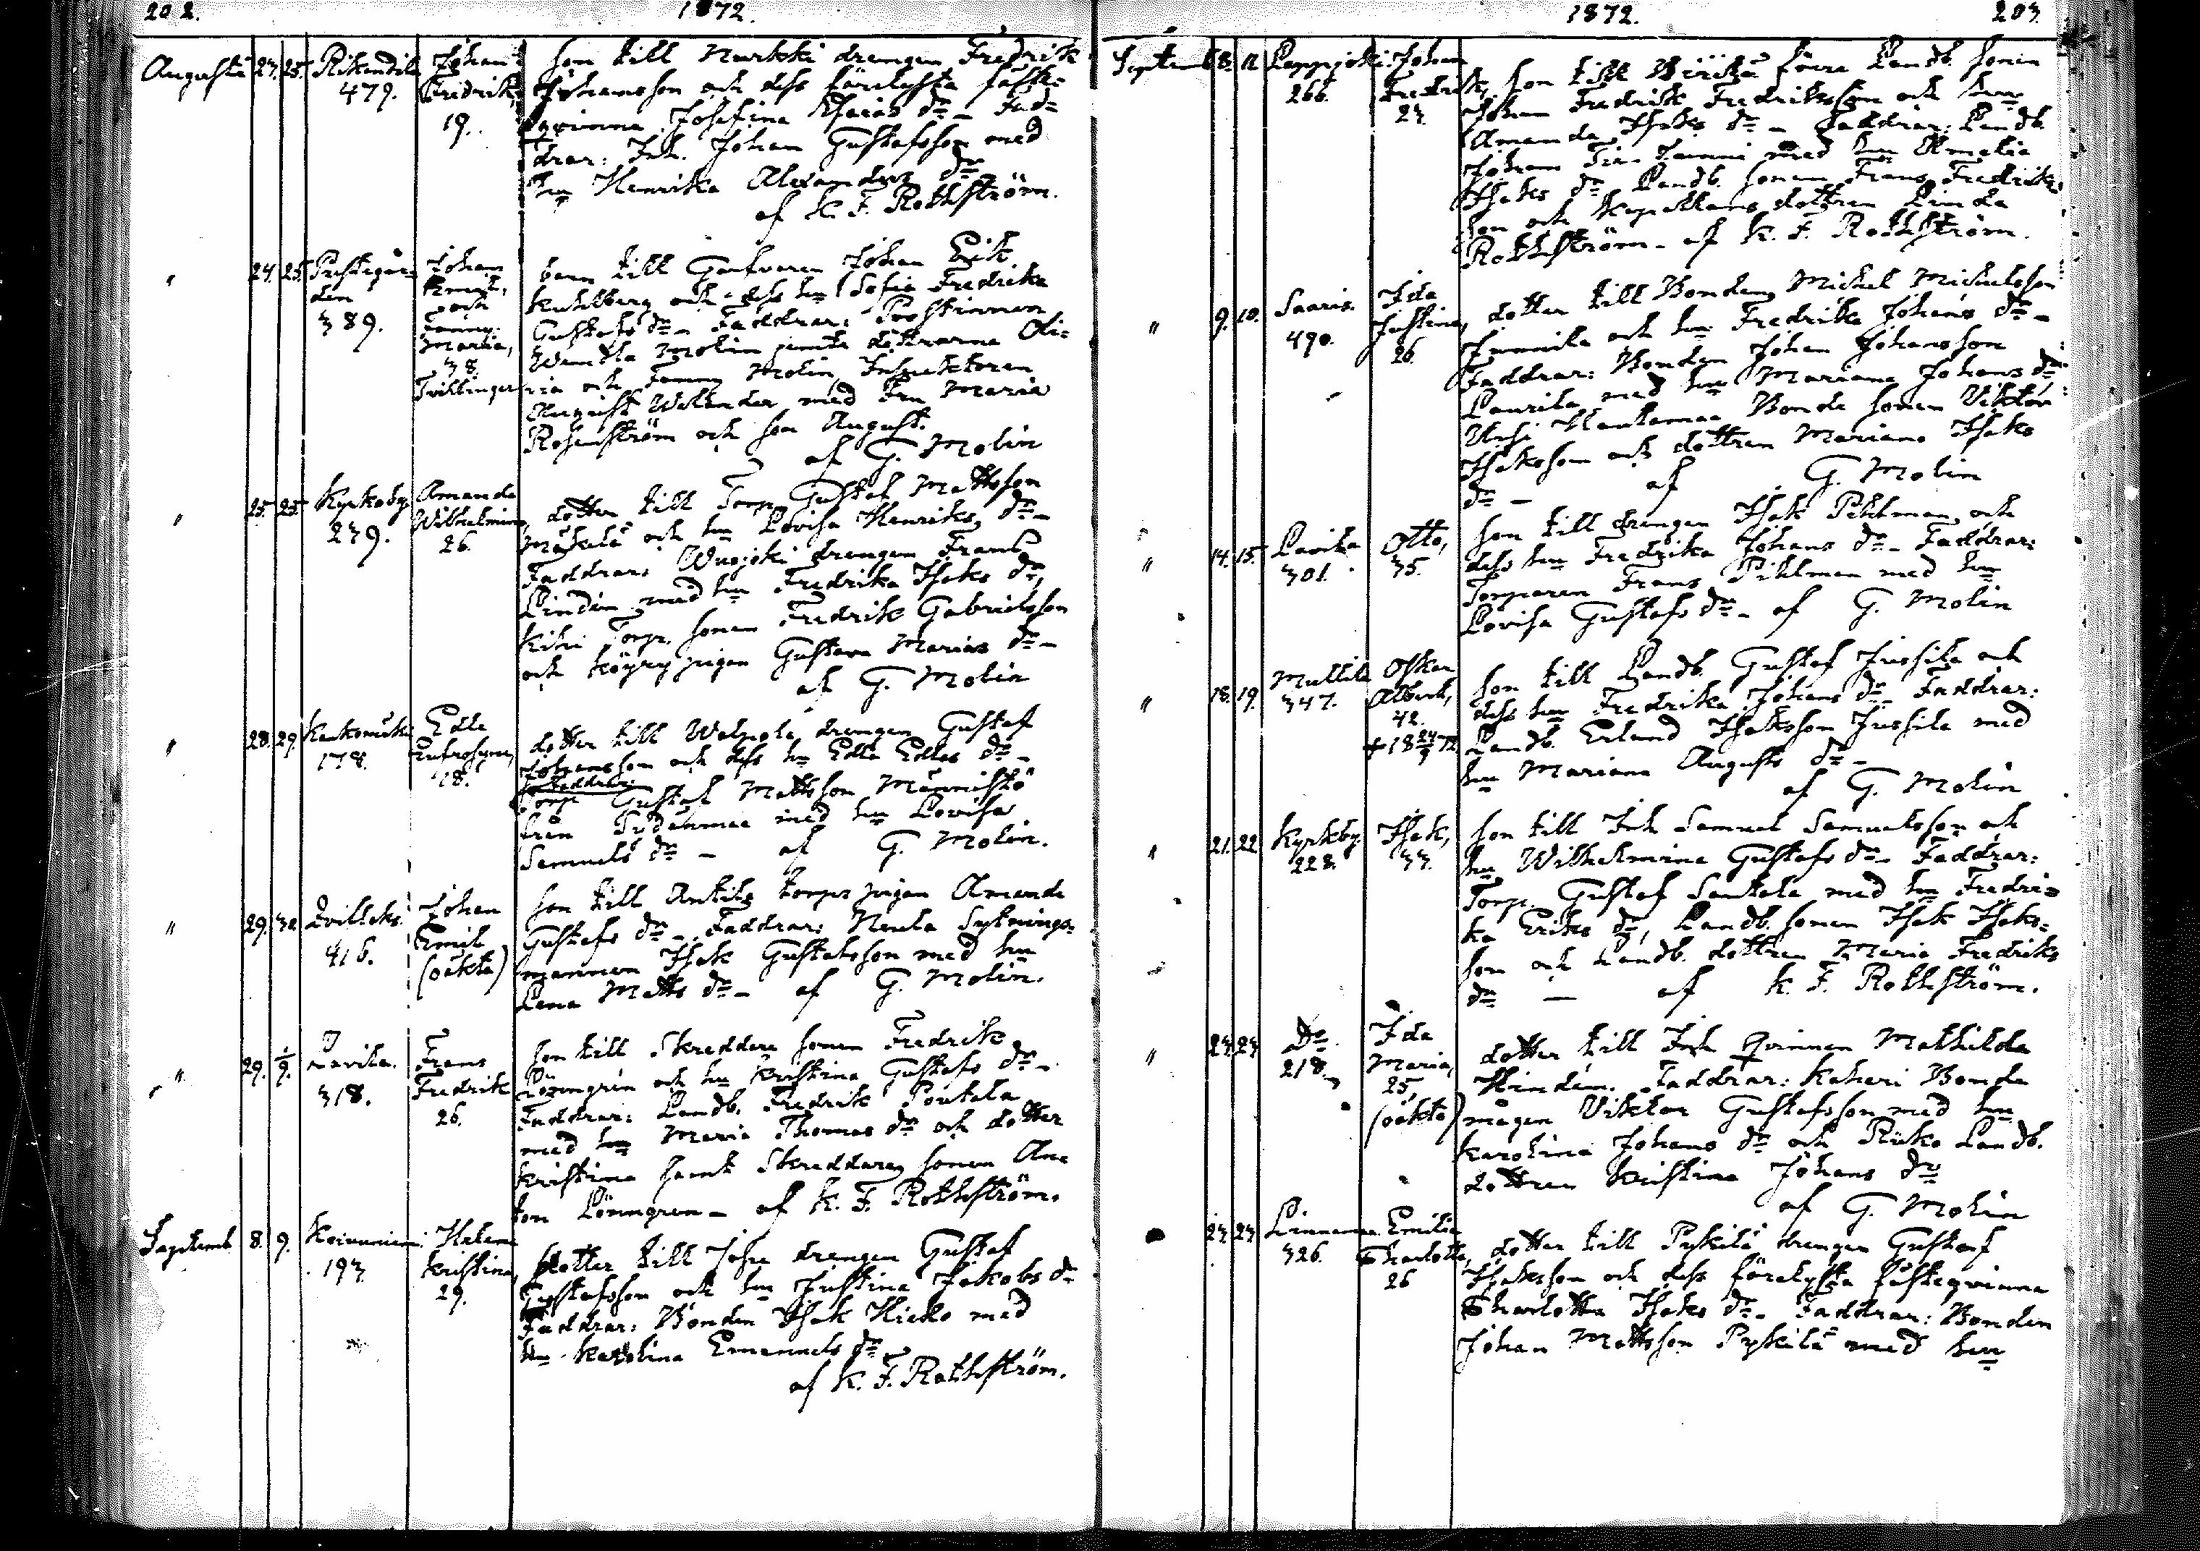 202.
1872.
Augusti 23. 25.
479.
Johan
Fredrik,
19.
son till Murkki drengen Fredrik
Johansson och dess förelysta fäst-
qvinna Josefina Esaias dr_ Fad-
drar: Inh. Johan Gustafsson med
hu Henrika Alexanders dr
af K. F. Rothström.
" 24. 25. Prestgår-
den
389.
Johan
Emil,
och
Fanny
Maria,
38.
Tvillingar
barn till Garfvaren Johan Erik
Kuhlberg och dess hu Sofia Fredrika
Gustafs dr_ Faddrar: Prostinnan
Wendla Molin jemte döttrarna Oli-
via och Fanny Molin, Inspektoren
August Welander med Fru Maria
Rosenström och son August.
af G. Molin
" 25. 25. Kyrkoby
239.
Amanda
Wilhelmina,
26.
dotter till Torp. Gustaf Mattsson
Mäkelä och hu Lovisa Henriks dr_
Faddrar: Wuojoki drengen Frans
Lindén med hu Fredrika Isaks dr,
Kihri Torp. sonen Fredrik Gabrielsson
och Köyry pigan Gustava Marias dr_
af G. Molin
" 28. 29.
178.
Edla
Eufrosyne,
18.
dotter till Walpola drengen Gustaf
Johansson och dess hu Edla Edlas dr_
Faddrar:
Torp. Gustaf Mattsson Männistö
från Sydänmaa med hu Lovisa
Samuels dr _ af G. Molin.
" 29. 30.
416.
Johan
Emil
(oäkta)
son till Anttila torps pigan Amanda
Gustafs dr_ Faddrar: Neula Sytnings-
mannen Isak Gustafsson med hu
Lena Matts dr_ af G. Molin.
" 29. 1/9. Lavila.
318.
Frans
Fredrik
26.
son till Skreddare sonen Fredrik
Lönngrén och hu Kristina Gustafs dr_
Faddrar: Landb. Fredrik Poutala
med hu Maria Thomas dr och dotter
Kristina samt Skreddare sonen An-
ton Lönngren _ af K. F. Rothström.
Septemb. 8. 9.
193.
Helena
Kristina,
29.
dotter till drengen Gustaf
Gustafsson och hu Justina Jakobs dr
Faddrar: Bonden Isak Hieko med
hu Karolina Emanuels dr
af K. F. Rothström.
1872.
203.
Septemb. 8. 11. Leppijoki
266.
Johan
Fredrik,
23.
son till Wiirilä fore Landb. sonen
Johan Fredrik Fredriksson och hu
Amanda Isaks dr _ Faddrar: Landb.
Johan med hu Amalia
Isaks dr Landb. sonen Frans Fredriks-
son och kapellans dottren Linda
Rothström _ af K. F. Rothström.
" 9. 10. Saaris
490.
Ida
Justina,
26.
dotter till Bonden Mickel Mickelsson
Junnila och hu Fredrika Johans dr _
Faddrar: Bonden Johan Johansson
Laurila med hu Mariana Johans dr
Uusi Hankamaa Bonde sonen Viktor
Isaksson och dottren Mariana Isaks
dr _ af G. Molin
" 14. 15. Lavila
301.
Otto,
35.
son till drengen Isak Pihlman och
dess hu Fredrika Johans dr _ Faddrar:
Torparen Frans Pihlman med hu
Lovisa Gustafs dr _ af G. Molin
" 18. 19. Mullila
347.
Oskar
Albert,
42.
+ 18 24/9 72
son till Landb. Gustaf Jussila och
dess hu Fredrika Johans dr _ Faddrar:
Landb. Erland Isaksson Jussila med
hu Mariana Augusts dr _
af G. Molin
" 21. 22. Kyrkby
228.
Isak,
33.
son till Inh Samuel Samuelsson och
hu Wilhelmina Gustafs dr _ Faddrar:
Torp. Gustaf Santala med hu Fredri-
ka Eriks dr, Landb. sonen Isak Isaks-
son och Landb. dottren Maria Fredriks
dr _ af K. F. Rothström.
" 23. 23. Do
218.
Ida
Maria,
25,
(oäkta)
dotter till Inh Qvinnan Mathilda
Hindén. Faddrar: Kaheri Bonde
mågen Viktor Gustafsson med hu
Karolina Johans dr och Rieko Landb.
dottren Kristina Johans dr
af G. Molin
" 23. 23. Linnanmaa
326.
Emilia
Charlotta,
26
dotter till Pyhilä drengen Gustaf
Isaksson och dess förelysta fästeqvinna
Charlotta Isaks dr _ Faddrar: Bonden
Johan Mattsson Pyhilä med hu